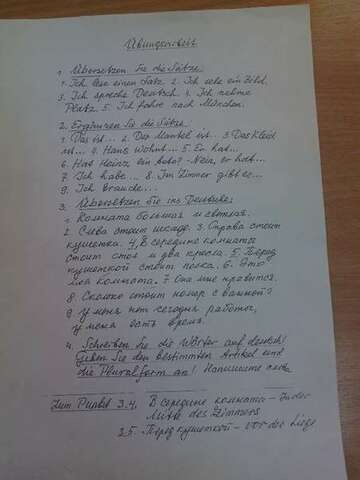 Übungsarbeit
1. Übersetzen Sie die Sätze:
1. Ich lese einen Satz. 2. Ich sehe ein Bild.
3. Ich spreche Deutsch. 4. Ich nehme
Platz. 5. Ich fahre nach München.
2. Ergänzen Sie die Sätze:
1. Das ist... 2. Der Mantel ist.. 3. Das Kleid
ist... 4. Hans wohnt... 5. Er hat...
6. Hat Heinz ein Auto? Nein, er hat...
7. Ich habe... 8. Im Zimmer gibt es...
9. Ich brauche...
3. Übersetzen Sie ins Deutsche:
1. Комната большая и светлая.
2. Слева стоит шкаф. 3. Справа стоит
кушетка. 4. В середине комнаты
стоит стол и два кресла. 5. Перед
кушеткой стоит полка. 6. Это
моя комната. 7. Она мне нравится.
8. Сколько стоит номер с ванной?
9. У меня нет сегодня работы,
у меня есть время.
4. Schreiben Sie die Wörter auf deutsch!
Geben Sie den bestimmten Artikel und
die Pluralform an! Напишите
Zum Punkt 3.4. В середине комнаты – In der
Mitte des Zimmers
3.5. Перед кушеткой – vor der Liege